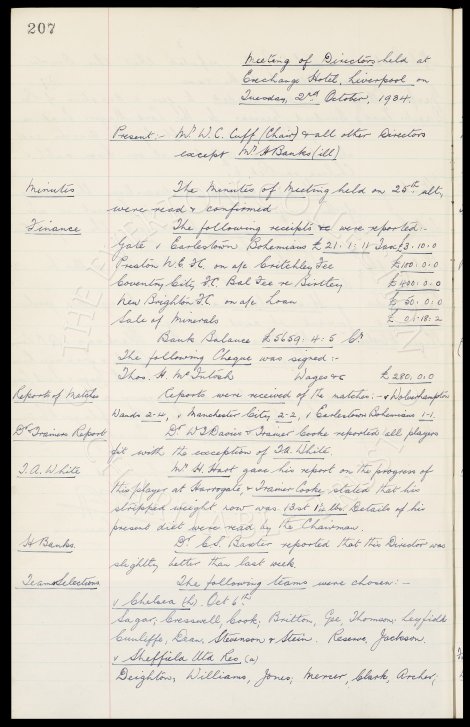 207
Meeting of Directors held at
Exchange Hotel, Liverpool on
Tuesday, 2nd October, 1934.
Present:- Mr W. C. Cuff (Chair) & all other Directors
except Mr H Banks (ill)
Minutes The Minutes of Meeting held on 25th ult,
were read & confirmed
Finance The following receipts &c were reported:-
Gate v Earlestown Bohemians £21:1:11 £3.10.0
Preston N.E. F.C. on a/c Critchley Fee £100:0:0
Coventry City F.C. Bal Fee re Birtley £400:0:0
New Brighton F.C. on a/c Loan £50:0:0
Sale of Minerals £0:18:2
Bank Balance £5659:4:5 Cr
The following Cheque was signed:-
Thos. H. McIntosh Wages &c £280.0.0
Reports of Matches Reports were received of the matches:- v Wolverhampton
Wands 2-4, v Manchester City, 2-2, v Earlestown Bohemians 1-1.
Dr & Trainers Report Dr W J Davies & Trainer Cooke reported all players
fit with the exception of T.A. White.
T. A. White Mr H. Hart gave his report on the progress of
this player at Harrogate & Trainer Cooke stated that his
stripped weight now was 13 st 1½ lbs. Details of his
present diet were read by the Chairman.
H Banks Dr C. S. Baxter reported that this Director was
slightly better than last week.
Team Selections The following teams were chosen:-
v Chelsea (h) Oct 6th
Sagar, Cresswell, Cook, Britton, Gee, Thomson. Leyfield
Cunliffe, Dean, Stevenson & Stein. Reserve, Jackson.
v Sheffield Utd Res. (a)
Deighton, Williams, Jones, Mercer, Clark, Archer,